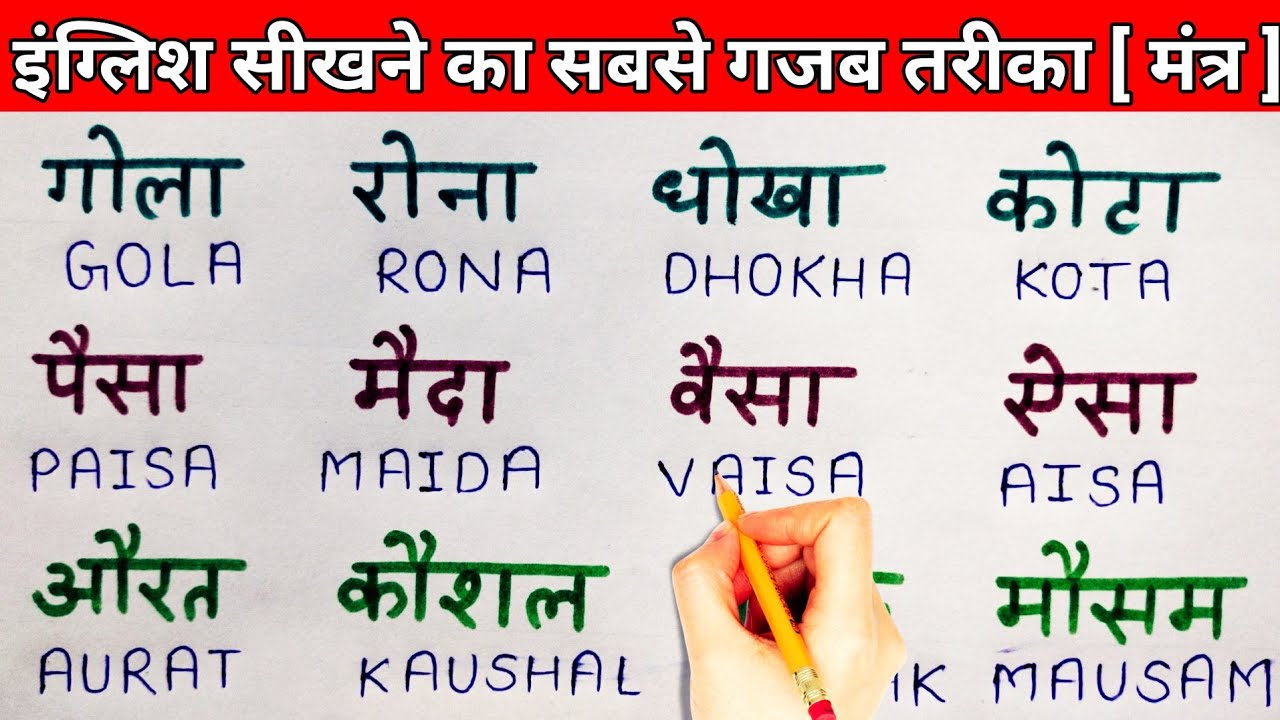 इंग्लिश सीखने का सबसे गजब तरीका [ मंत्र ]
गोला रोना धोखा कोटा
GOLA RONA DHOKHA KOTA
पैसा मैदा वैसा ऐसा
PAISA MAIDA VAISA AISA
औरत कौशल मौसम
AURAT KAUSHAL MAUSAM